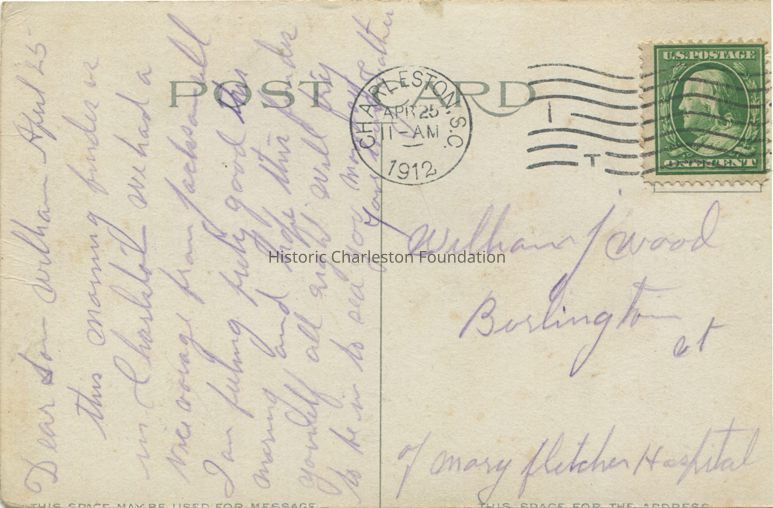 POST CARD
CHARLESTON, S.C.
APR 25
11-AM
1912
U.S. POSTAGE
ONE CENT
Dear Son William April 25
this morning finds us
in Charlston we had a
nice voiage from Jacksonvill
I am feeling pretty good this
morning and hope this finds
yourself all right will try
to be in to see you
your father
William J Wood
Burlington
vt
Mary Fletcher Hospital
Historic Charleston Foundation
THIS SPACE MAY BE USED FOR MESSAGE
THIS SPACE FOR THE ADDRESS